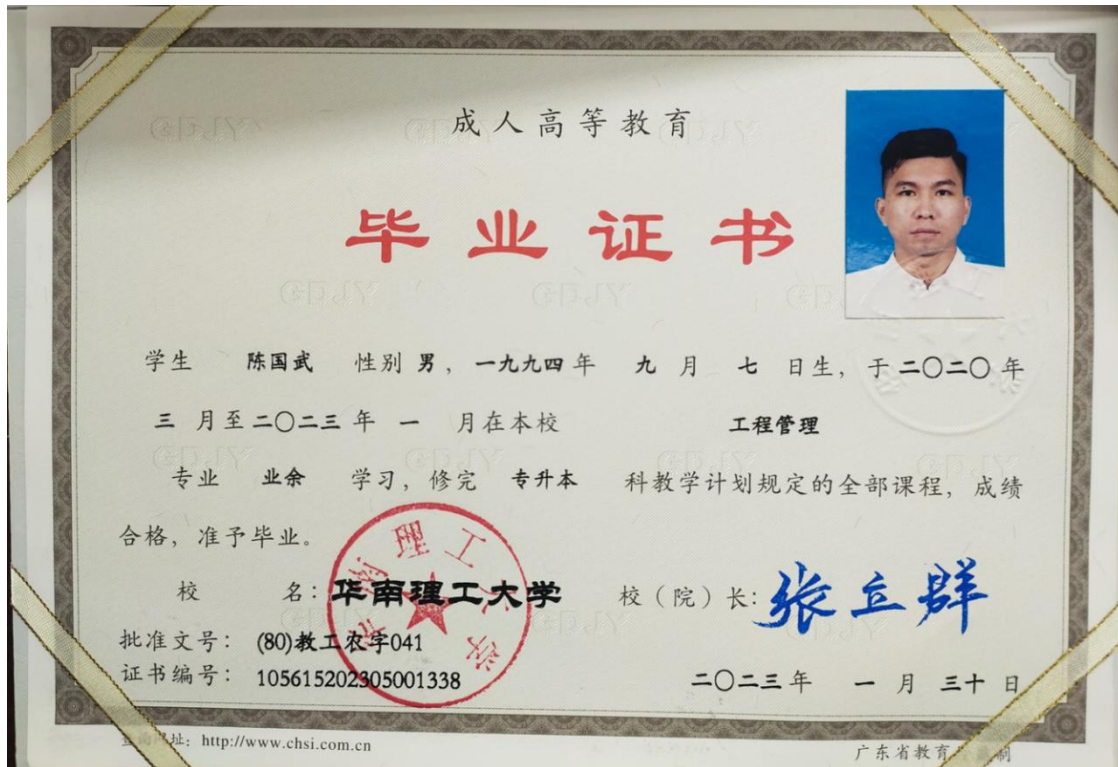 成人高等教育
毕业证书
学生 陈国武 性别 男，一九九四年 九 月 七 日生，于二〇二〇年
三 月至二〇二三年 一 月在本校 工程管理
专业 业余 学习，修完 专升本 科教学计划规定的全部课程，成绩
合格，准予毕业。
校 名：华南理工大学 校（院）长：张立群
批准文号：(80)教工农字041
证书编号：105615202305001338
二〇二三年 一 月 三十 日
网址：http://www.chsi.com.cn
广东省教育 制
华南理工大学
GDJY